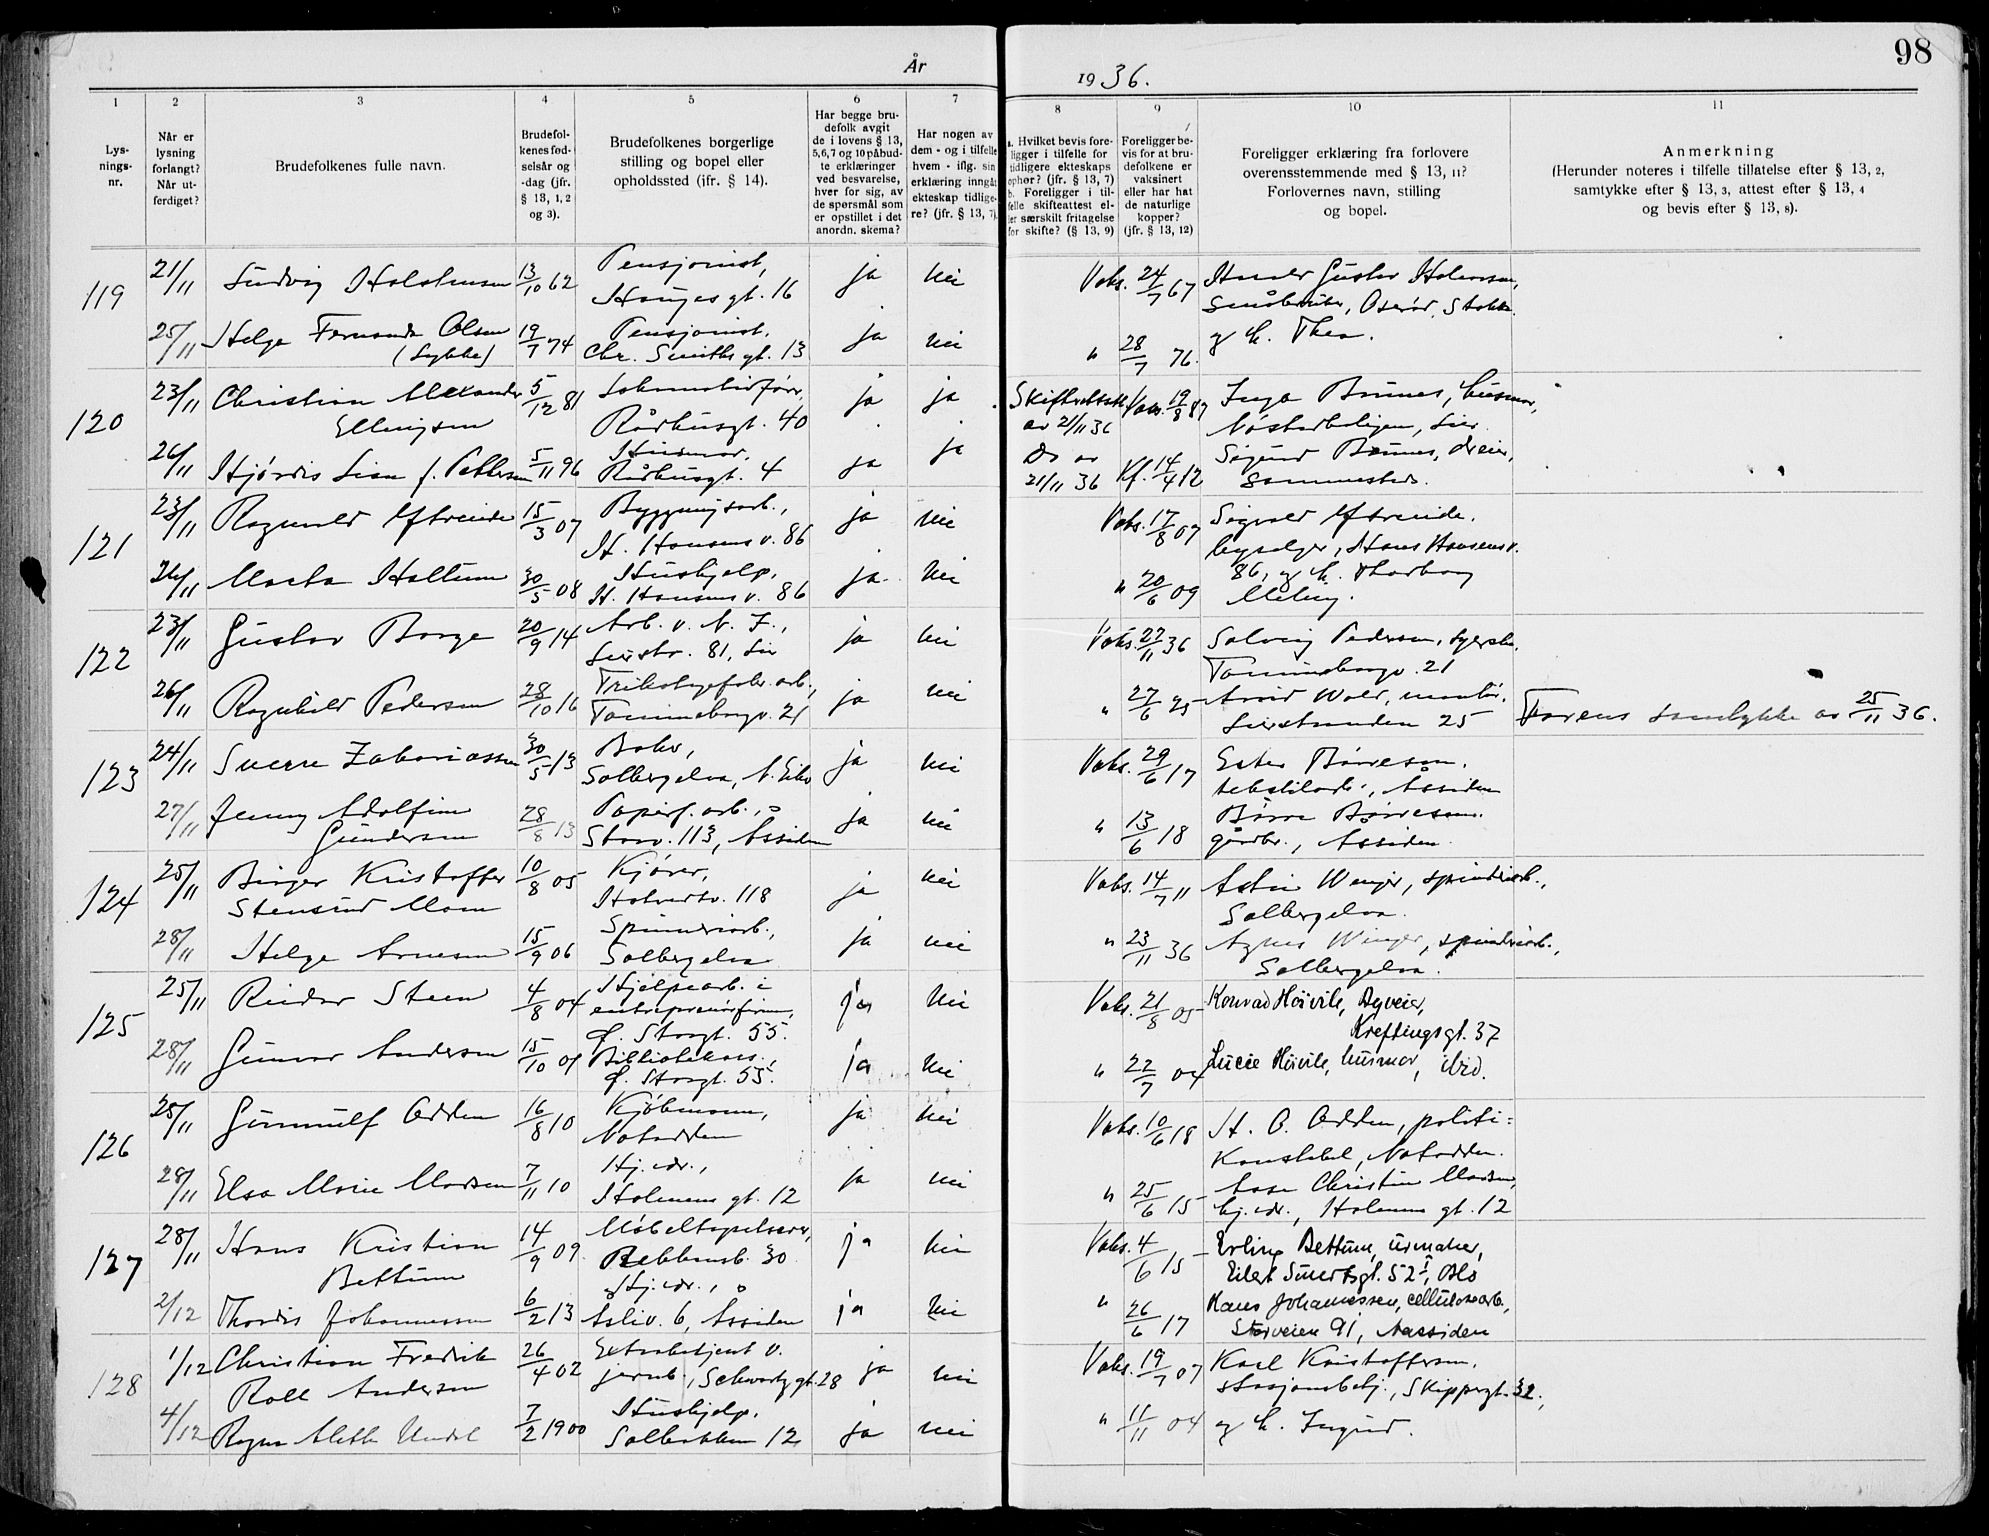 98
År 1936.
1 2 3 4 5 6 7 8 9 10 11
Lys-
nings-
nr.
Når er
lysning
forlangt?
Når ut-
ferdiget?
Brudefolkenes fulle navn.
Brudefol-
kenes fød-
selsår og
-dag (jfr.
§ 13, 1, 2
og 3).
Brudefolkenes borgerlige
stilling og bopel eller
opholdssted (ifr. § 14).
Har begge bru-
defolk avgit
de i lovens § 13,
5,6,7 og 10 påbud-
te erklæringer
ved besvarelse,
hver for sig, av
de spørsmål som
er opstillet i det
anordn. skema?
Har nogen av
dem - og i tilfelle
hvem - iflg. sin
erklæring inngåt
ekteskap tidlige-
re? (jfr. § 13, 7).
a. Hvilket bevis fore-
ligger i tilfelle for
tidligere ekteskaps
ophør? (jfr. § 13, 7)
b. Foreligger i til-
felle skifteattest el-
ler særskilt fritagelse
for skifte? (§ 13, 9)
Foreligger be-
vis for at bru-
defolkene er
vaksinert
eller har hat
de naturlige
kopper?
(jfr. § 13, 12)
Foreligger erklæring fra forlovere
overensstemmende med § 13, 11?
Forlovernes navn, stilling
og bopel.
Anmerkning
(Herunder noteres i tilfelle tillatelse efter § 13, 2,
samtykke efter § 13, 3, attest efter § 13, 4
og bevis efter § 13, 8).
119 21/11 Ludvig Holstensen 13/10 62 Pensjonist, Hauges gt. 16 ja nei Vaks. 24/7 67 Gustav
25/11 Helga Fernanda Olsen (Lykke) 19/7 74 Pensjonist, Chr. Smiths gt. 13 ja nei " 28/7 76. og h. Thea.
120 23/11 Christian Alexander Ellingsen 5/12 81 Lokomotivfører, Rådhusgt. 40 ja ja Skifteattest av 21/11 36 Vaks. 19/8 87 Inga Brunes, husmor,
26/11 Hjørdis Lian f. Pettersen 5/11 96 Husmor, Rådhusgt. 4 ja ja Do av 21/11 36 Kf. 14/4 12 Sigurd Brunes, dreier, sammesteds.
121 23/11 Ragnvald Aftreide 15/3 07 Bygningsarb., H. Hansens v. 86 ja nei Vaks. 17/8 07 Sigvald Aftreide, Hans Hansens v.
26/11 Marta Haltum 30/5 08 Hushjelp, H. Hansens v. 86 ja nei " 20/6 09 86, og h. Thorborg
122 23/11 Gustav Borge 20/9 14 Arb. v. N. J., Lierstr. 81, Lier ja nei Vaks. 22/11 36 Solveig Pedersen, syerske, Tamineborgv. 21
26/11 Ragnhild Pedersen 28/10 16 Trikotagefabr.arb., Tamineborgv. 21 ja nei " 27/6 25 Arvid Wold, montør, Lierstranden 25 Farens samtykke av 25/11 36.
123 24/11 Sverre Zakariassen 30/5 13 Baker, Solbergelva, N. Eiker ja nei Vaks. 29/6 17 Ester Børresen, tekstilarb., Åssiden
27/11 Jenny Adolfine Gundersen 28/8 13 Papirf. arb., Storv. 113, Åssiden ja nei " 13/6 18 Børre Børresen, gårdbr., Åssiden.
124 25/11 Birger Kristoffer Stensrud Moen 10/8 05 Kjører, 118 ja nei Vaks. 14/7 11 Winger, spinneriarb., Solbergelva.
28/11 Helga Arnesen 15/9 06 Spinneriarb., Solbergelva ja nei " 23/11 36 Agnes Winger, spinneriarb., Solbergelva.
125 25/11 Reidar Steen 4/8 04 Hjelpearb. i entreprenørfirma, Ø. Storgt. 55. ja nei Vaks. 21/8 05 Konrad Høivik, Dyveier, Kreftingsgt. 37
28/11 Gunvor Andersen 15/10 09 Bibliotekass., Ø. Storgt. 55. ja nei " 22/7 04 Lucie Høivik, husmor, ibid.
126 25/11 Gunnulf Odden 16/8 10 Kjøbmann, Notodden ja nei Vaks. 10/6 18 H. O. Odden, politi=
konstabel, Notodden.
28/11 Elsa Marie Madsen 7/11 10 Hj.vær., Holmens gt. 12 ja nei " 25/6 15 Aase Christine Madsen, hj.vær., Holmens gt. 12
127 28/11 Hans Kristian Bettum 14/9 09. Møbeltapetserer, Bekkensb. 30 ja nei Vaks. 4/6 15 Erling Bettum, urmaker, Eilert Sundtsgt. 52 I, Oslo
2/12 Thordis Johannessen 6/2 13 Hj.vær., Åsliv. 6, Åssiden ja nei " 26/6 17 Hans Johannessen, cellulosearb., Storveien 91, Aassiden
128 1/12 Christian Fredrik Roll Andersen 26/4 02 Extrabetjent v. jernb., Schwartz gt. 28 ja nei Vaks. 19/7 07 Karl Kristoffersen, stasjonsbetj., Skippergt. 32,
4/12 Ragna Alette Undal 7/2 1900 Hushjelp, Solbakken 12 ja nei " 11/11 04 og h. Ingrid.